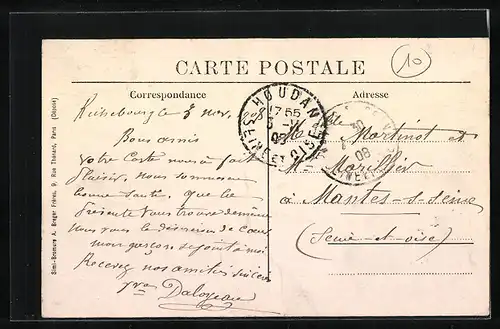 CARTE POSTALE
10
Correspondance
Adresse
3 nov.
Bons amis
Votre Carte nous a fait
plaisir, nous sommes en
bonne santé, que la
présente vous trouve de même
nous vous le désirons de cœur
mon garçon se joint à moi
Recevez nos amitiés sincères
Daloyeau
Martinot et
à Mantes-s-Seine
(Seine-et-oise)
HOUDAN
17 55
3-11
08
SEINE ET OISE
08
Simi-Bromure A. Breger Frères, 9, Rue Thénard, Paris (Déposé)